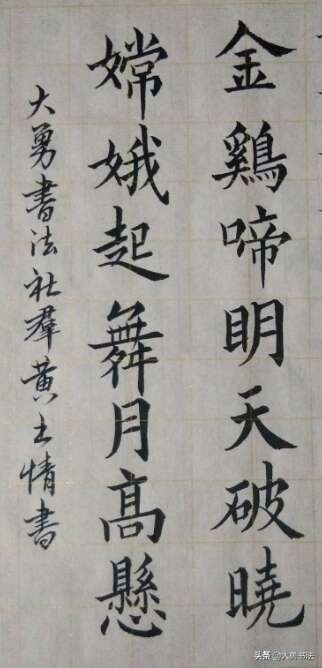 金鷄啼明天破曉
嫦娥起舞月高懸
大勇書法社羣黄土情書
头条@大勇书法